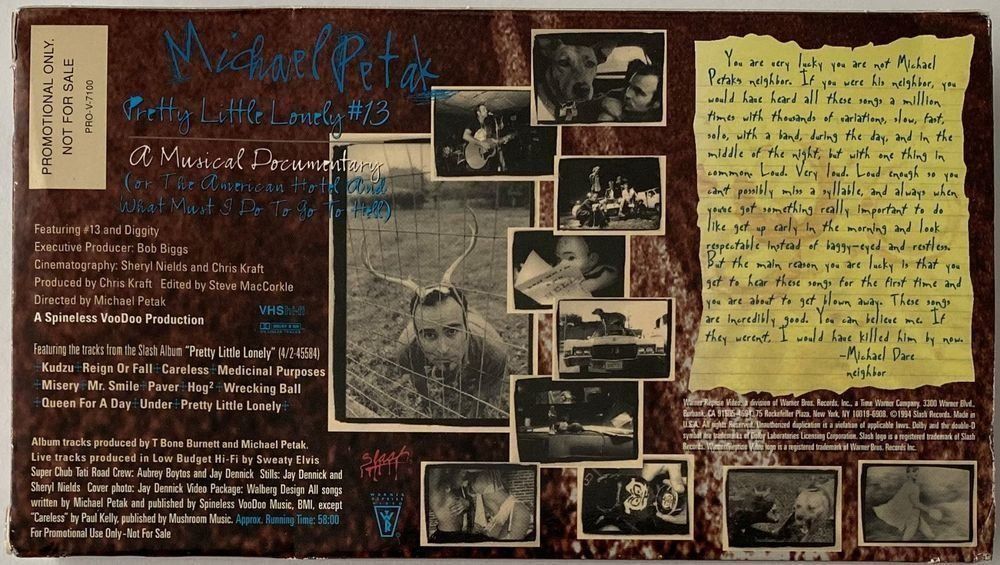 PROMOTIONAL ONLY.
NOT FOR SALE
PRO-V-7100
Michael Petak
Pretty Little Lonely #13
A Musical Documentary
(or The American Hotel And
What Must I Do To Go To Hell)
Featuring #13 and Diggity
Executive Producer: Bob Biggs
Cinematography: Sheryl Nields and Chris Kraft
Produced by Chris Kraft Edited by Steve MacCorkle
Directed by Michael Petak
A Spineless VooDoo Production
VHS HI-FI
DOLBY B NR
Featuring the tracks from the Slash Album "Pretty Little Lonely" (4/2-45584)
+Kudzu+Reign Or Fall+Careless+Medicinal Purposes
+Misery+Mr. Smile+Paver+Hog²+Wrecking Ball
+Queen For A Day+Under+Pretty Little Lonely+
Album tracks produced by T Bone Burnett and Michael Petak.
Live tracks produced in Low Budget Hi-Fi by Sweaty Elvis
Super Chub Tati Road Crew: Aubrey Boytos and Jay Dennick Stills: Jay Dennick and
Sheryl Nields Cover photo: Jay Dennick Video Package: Walberg Design All songs
written by Michael Petak and published by Spineless VooDoo Music, BMI, except
"Careless" by Paul Kelly, published by Mushroom Music. Approx. Running Time: 58:00
For Promotional Use Only-Not For Sale
slash
WARNER
REPRISE
VIDEO
You are very lucky you are not Michael
Petaks neighbor. If you were his neighbor, you
would have heard all these songs a million
times with thousands of variations, slow, fast,
solo, with a band, during the day, and in the
middle of the night, but with one thing in
common: Loud. Very loud. Loud enough so you
cant possibly miss a syllable, and always when
youve got something really important to do
like get up early in the morning and look
respectable instead of baggy-eyed and restless.
But the main reason you are lucky is that you
get to hear these songs for the first time and
you are about to get blown away. These songs
are incredibly good. You can believe me. If
they werent, I would have killed him by now.
-Michael Dare
neighbor
Warner Reprise Video, a division of Warner Bros. Records, Inc., a Time Warner Company, 3300 Warner Blvd.,
Burbank, CA 91505-4694; 75 Rockefeller Plaza, New York, NY 10019-6908. ©1994 Slash Records. Made in
U.S.A. All rights Reserved. Unauthorized duplication is a violation of applicable laws. Dolby and the double-D
symbol are trademarks of Dolby Laboratories Licensing Corporation. Slash logo is a registered trademark of Slash
Records. Warner Reprise Video logo is a registered trademark of Warner Bros. Records Inc.